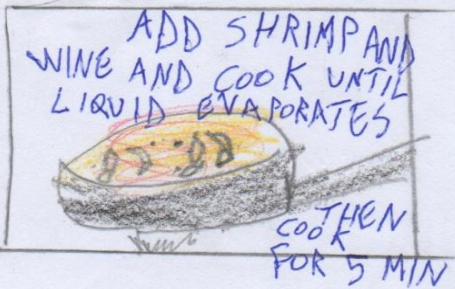 ADD SHRIMP AND
WINE AND COOK UNTIL
LIQUID EVAPORATES
THEN
COOK
FOR 5 MIN